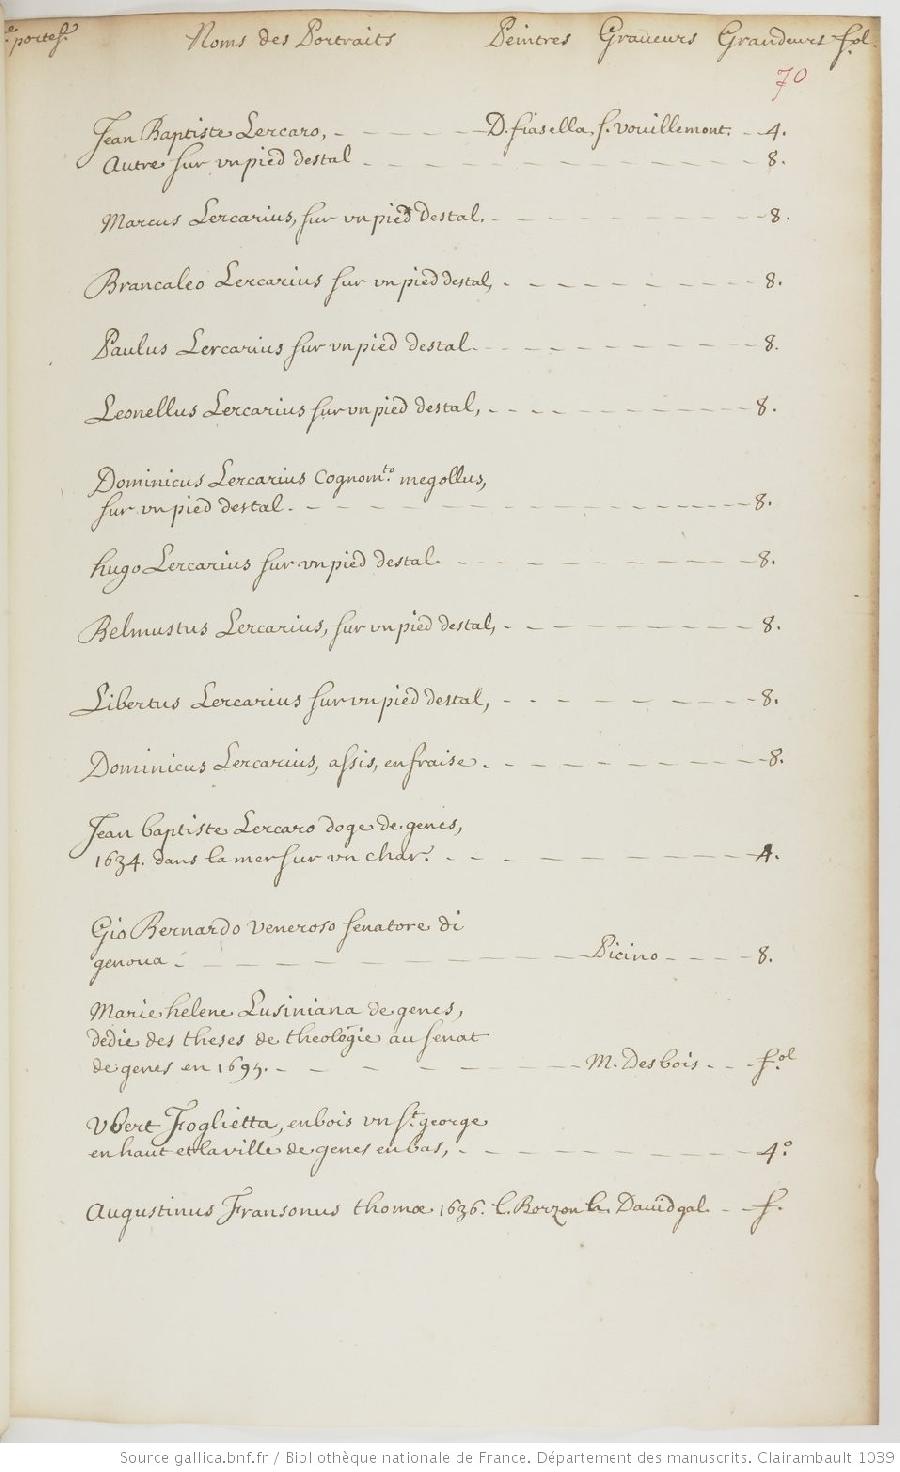 e. portef. Noms des Portraits Peintres Graueurs Grandeurs fol.
70
Jean Baptiste Lercaro, D. fiasella f. vouillemont. 4.
Autre sur vn pied destal 8.
Marcus Lercarius, sur vn pied destal. 8.
Brancaleo Lercarius sur vn pied destal, 8.
Paulus Lercarius sur vn pied destal. 8.
Leonellus Lercarius sur vn pied destal, 8.
Dominicus Lercarius Cognomto. megollus,
sur vn pied destal. 8.
hugo Lercarius sur vn pied destal. 8.
Belmustus Lercarius, sur vn pied destal, 8.
Libertus Lercarius sur vn pied destal, 8.
Dominicus Lercarius, assis, en fraise. 8.
Jean baptiste Lercaro doge de genes,
1634. dans la mer sur vn char. 4.
Gio Bernardo veneroso senatore di
genoua. Picino 8.
Marie helene Lusiniana de genes,
dedie des theses de theologie au senat
de genes en 1695. M. Desbois fol.
Vbert Foglietta, en bois vn St. george
en haut et la ville de genes en bas, 4o.
Augustinus Fransonus thomæ 1636. l. Borzon Dauid gal. f.
Source gallica.bnf.fr / Bibliothèque nationale de France. Département des manuscrits. Clairambault 1039